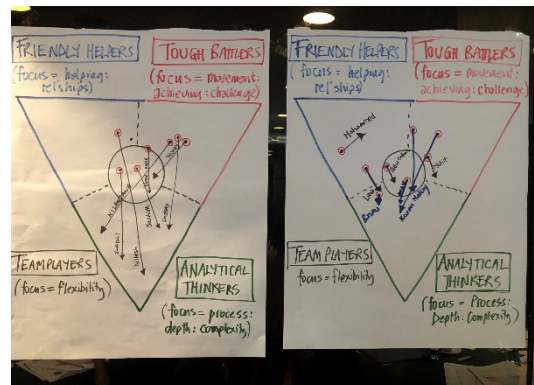 FRIENDLY HELPERS
(focus = helping:
rel'ships)
TOUGH BATTLERS
(focus = movement:
achieving: challenge)
Nitesh
TEAMPLAYERS
(focus = flexibility)
ANALYTICAL
THINKERS
(focus = process:
depth: complexity)
FRIENDLY HELPERS
(focus = helping
rel'ships)
TOUGH BATTLERS
(focus = movement:
achieving: challenge)
Mohammed
TEAM PLAYERS
focus = flexibility
ANALYTICAL
THINKERS
(focus = Process:
Depth: Complexity)